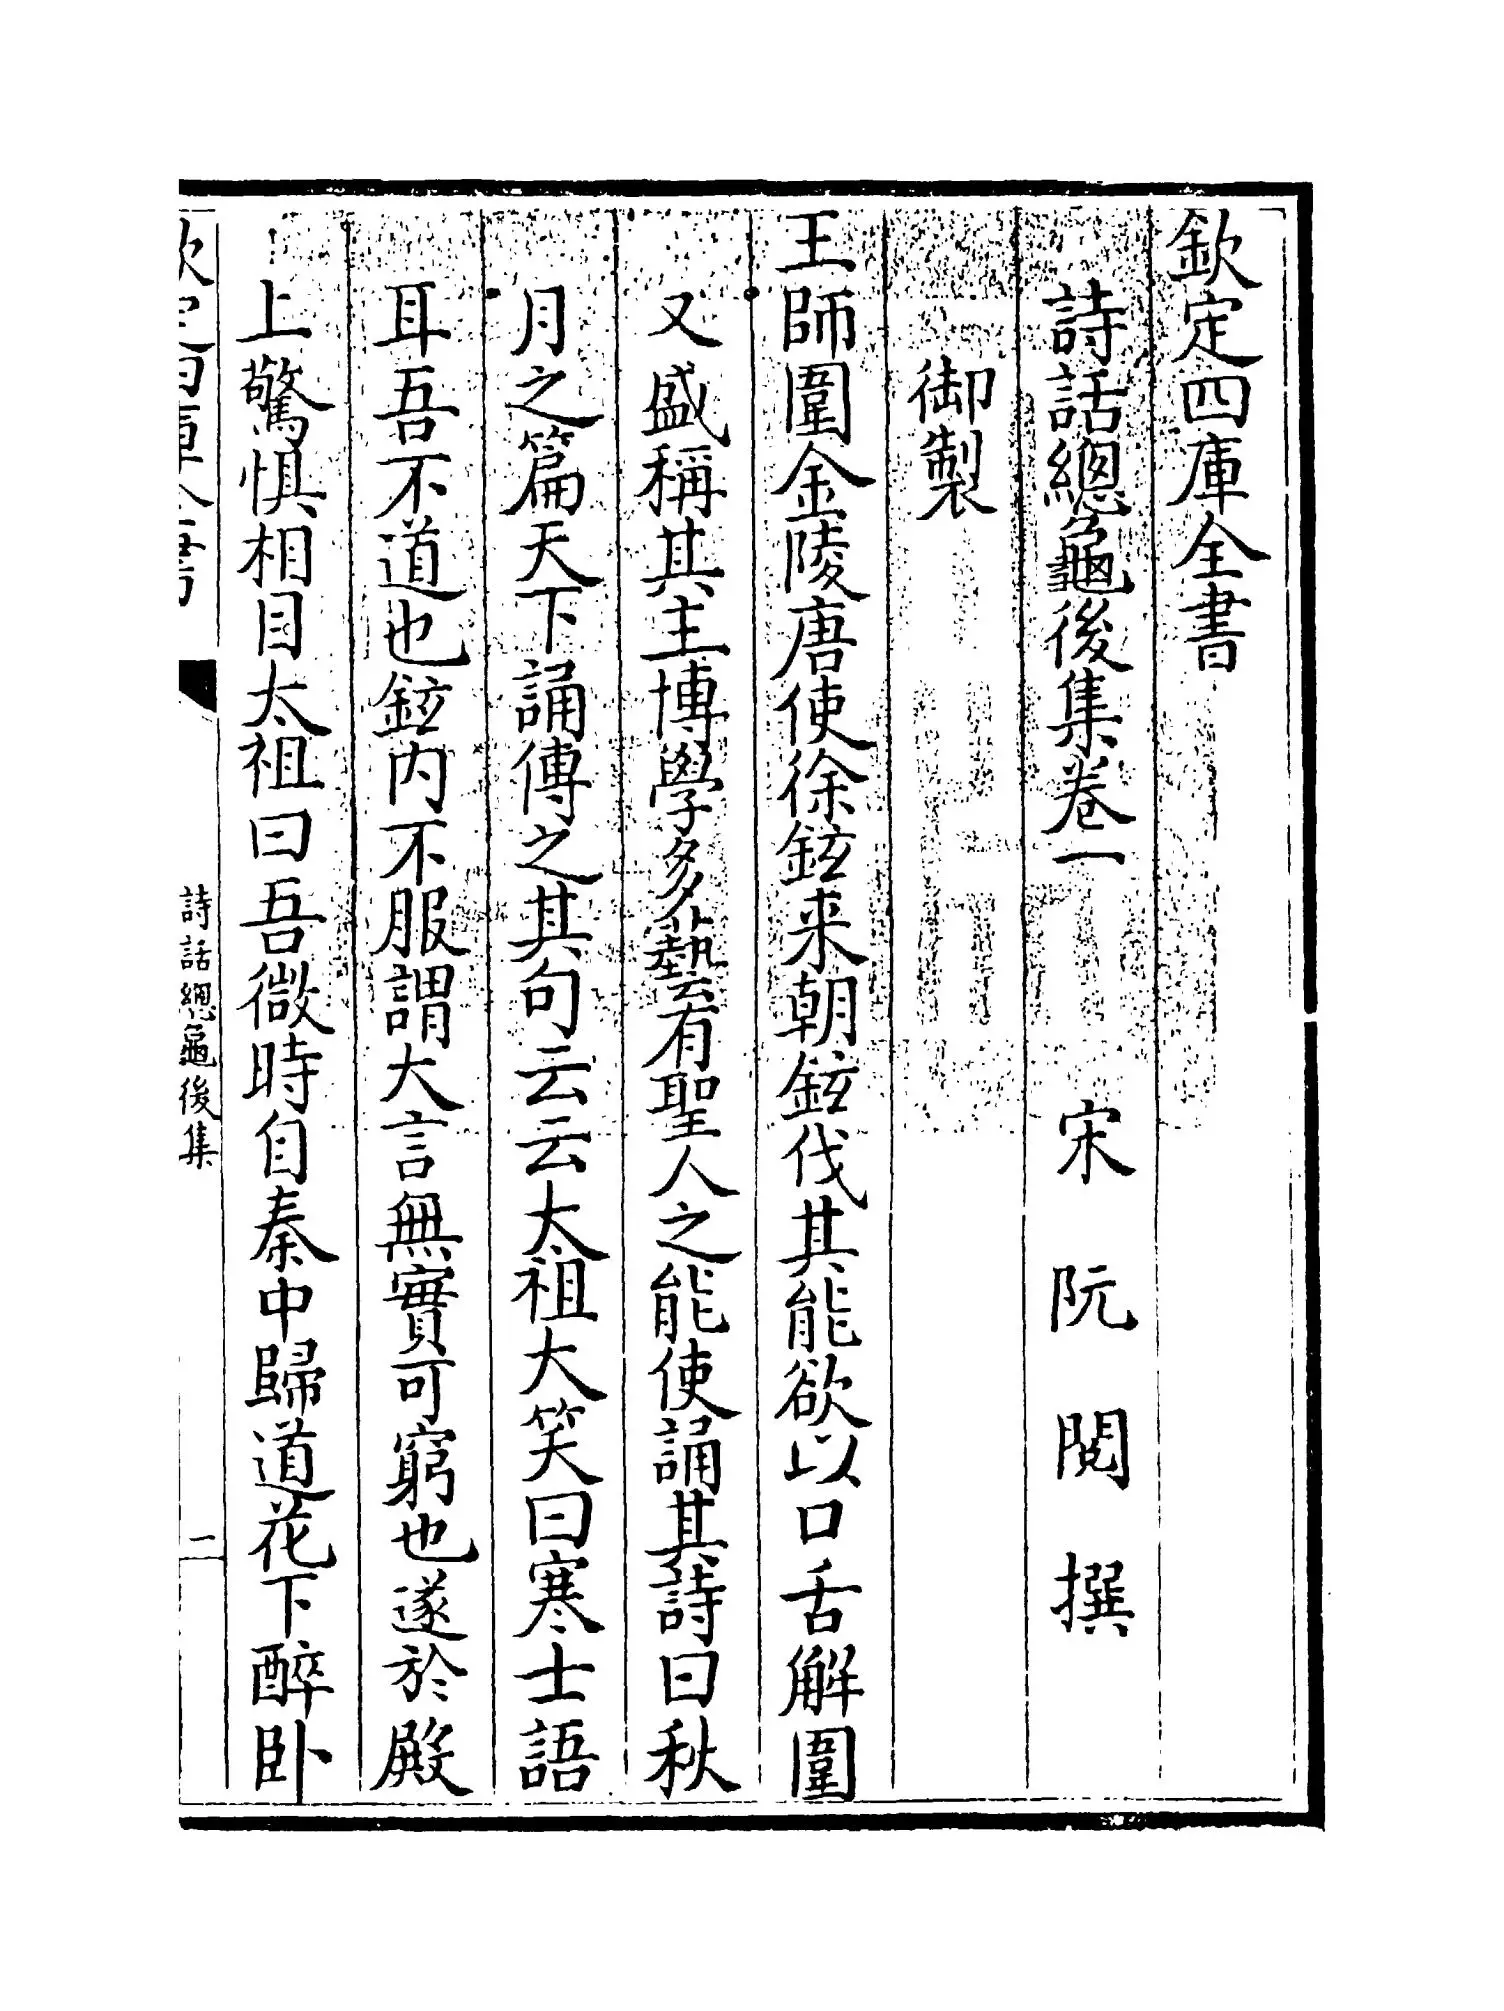 欽定四庫全書
詩話總龜後集卷一
宋 阮閱 撰
御製
王師圍金陵唐使徐鉉来朝鉉伐其能欲以口舌解圍
又盛稱其主博學多藝有聖人之能使誦其詩曰秋
月之篇天下誦傳之其句云云太祖大笑曰寒士語
耳吾不道也鉉内不服謂大言無實可窮也遂於殿
上驚惧相目太祖曰吾微時自秦中歸道花下醉卧
欽定四庫全書
詩話總龜後集
一